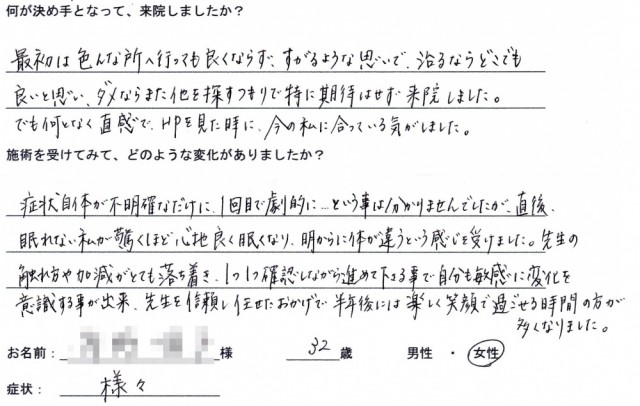 何が決め手となって、来院しましたか？
最初は色んな所へ行っても良くならず、すがるような思いで、治るならどこでも
良いと思い、ダメならまた他を探すつもりで特に期待はせず来院しました。
でも何となく直感で、HPを見た時に、今の私に合っている気がしました。
施術を受けてみて、どのような変化がありましたか？
症状自体が不明確なだけに、1回目で劇的に…という事は分かりませんでしたが、直後、
眠れない私が驚くほど心地良く眠くなり、明らかに体が違うという感じを受けました。先生の
触れ方や加減がとても落ち着き、1つ1つ確認しながら進めて下さる事で自分も敏感に変化を
意識する事が出来、先生を信頼し任せたおかげで半年後には楽しく笑顔で過ごせる時間の方が
多くなりました。
お名前： 様 32 歳 男性 ・ 女性
症状： 様々